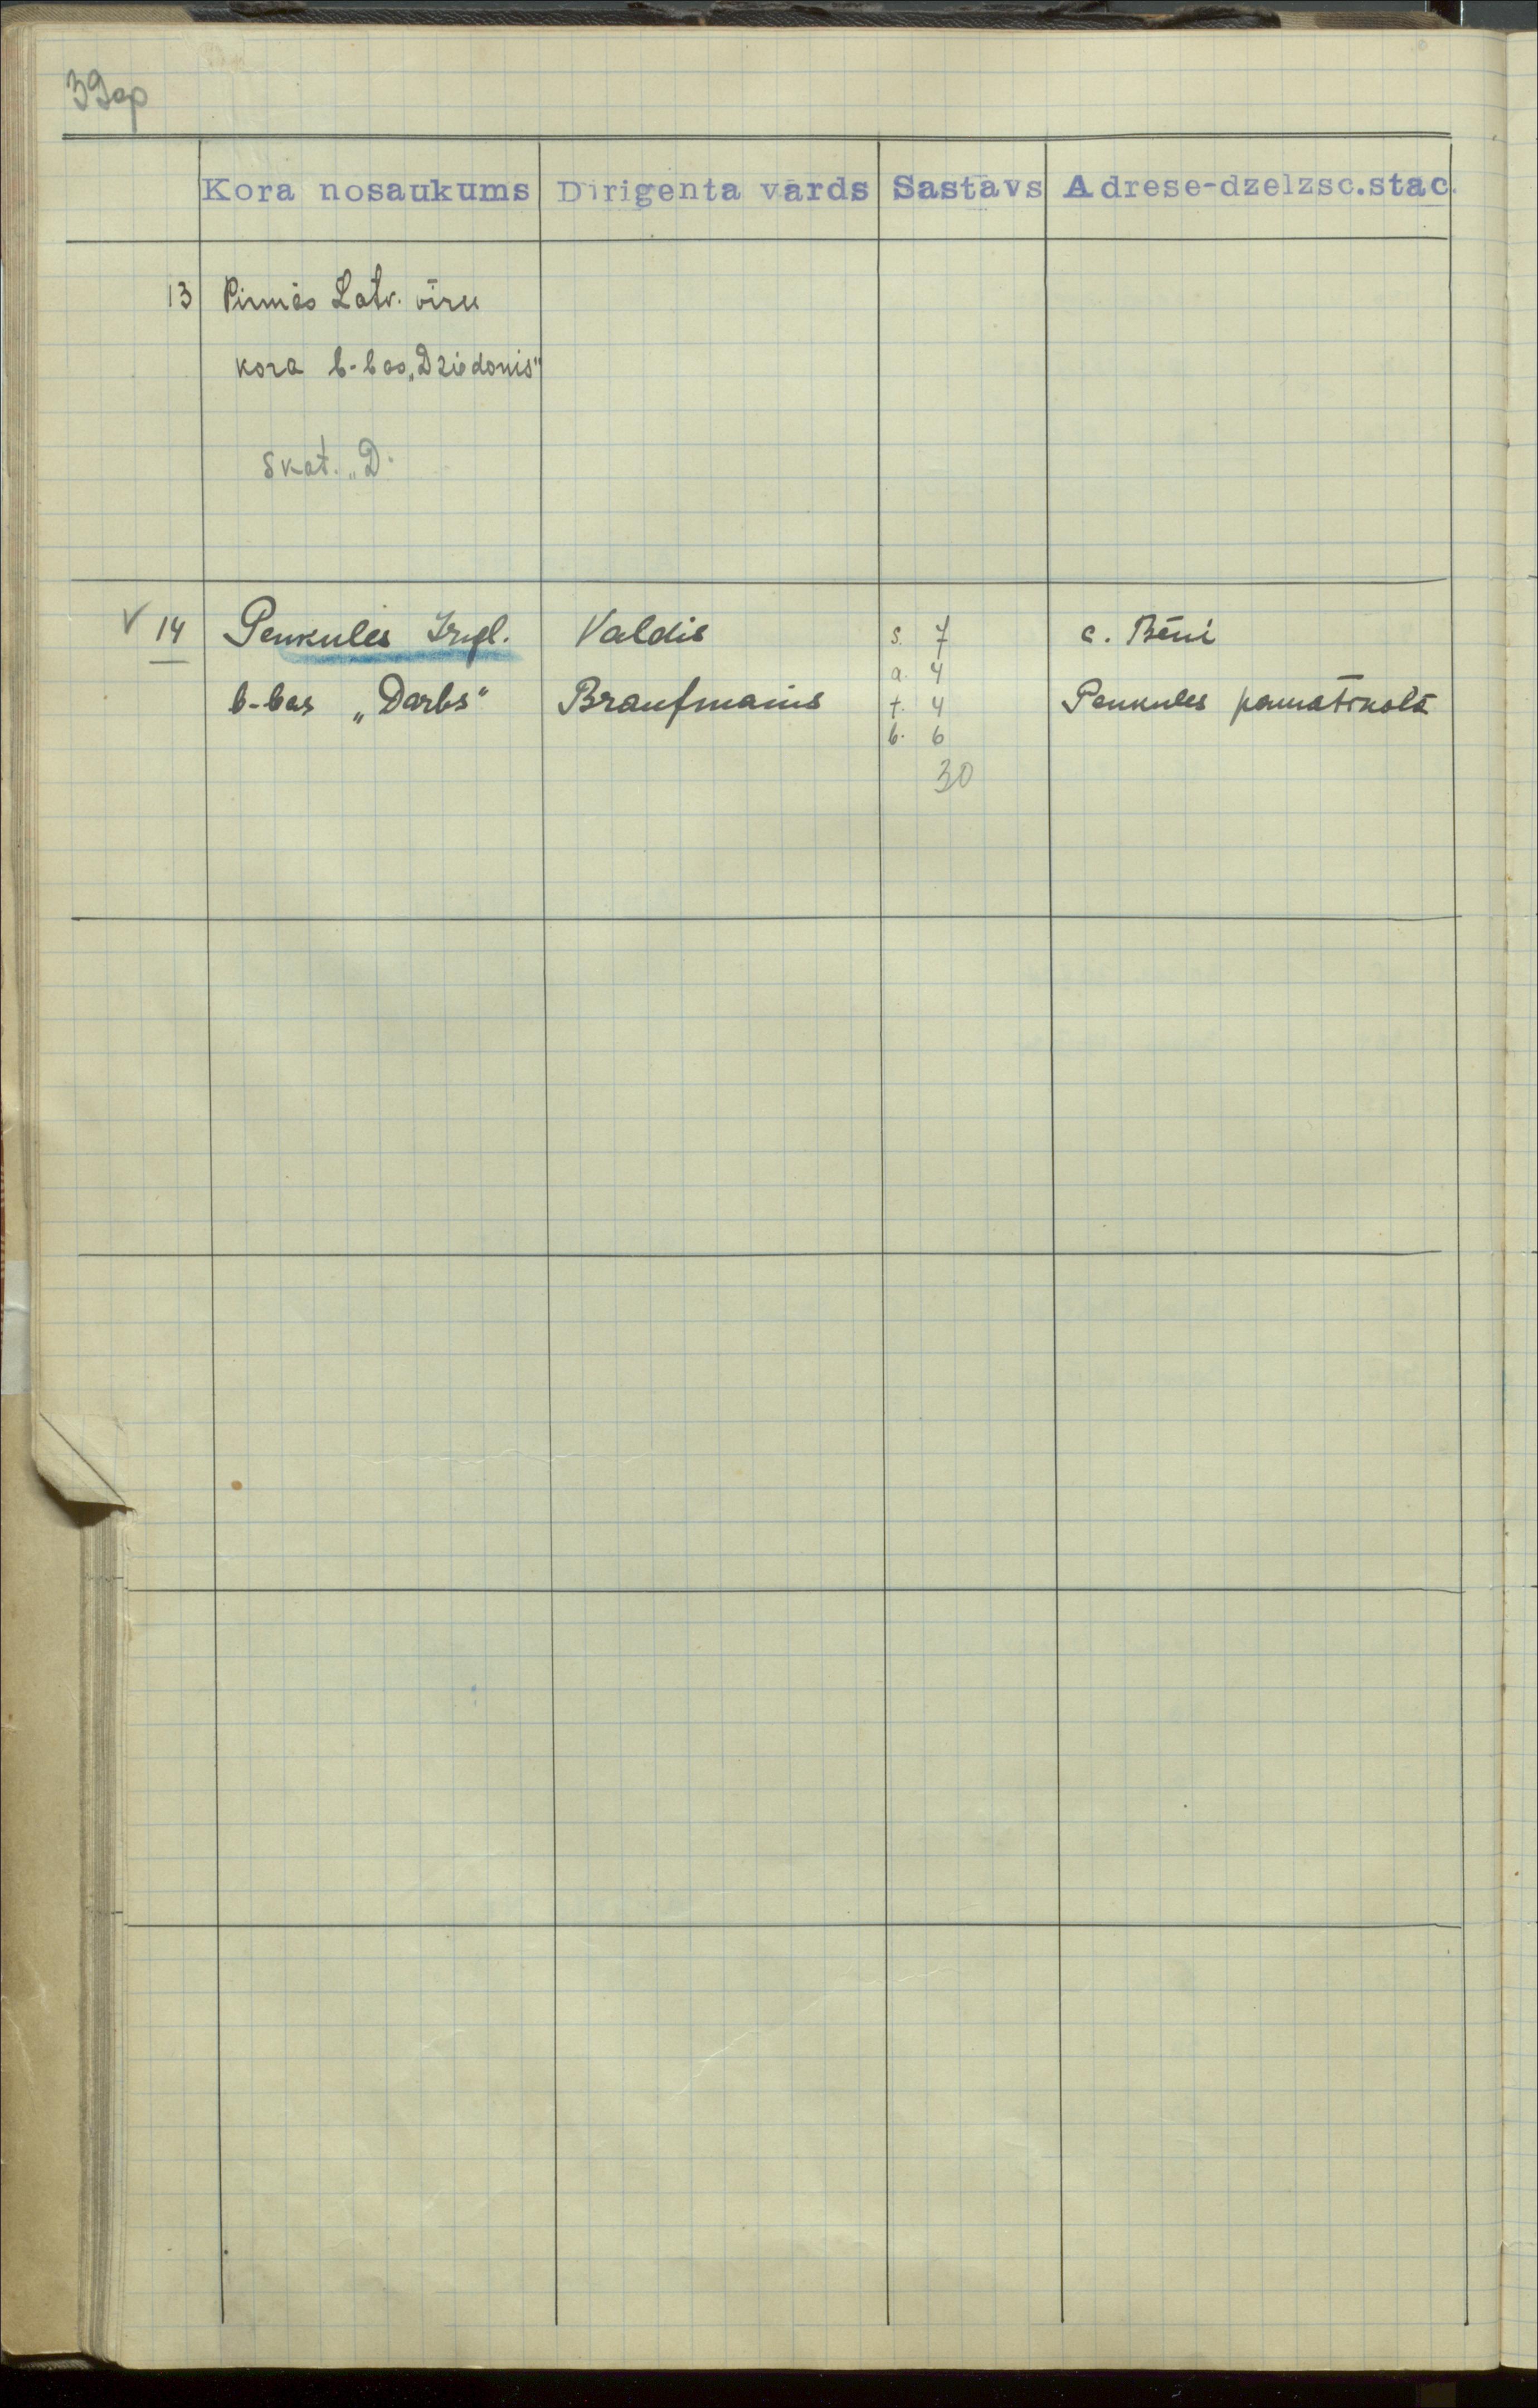 39ap
Kora nosaukums Dirigenta vārds Sastāvs Adrese-dzelzsc.stac.
13 Pirmās Latv. vīru
kora b-bas „Dziedonis"
skat. „D"
V 14 Penkules Izgl. Valdis s. 7 c. Bēni
a. 4
b-bas „Darbs" Braufmanis t. 4 Penkules pamatskolā
b. 6
30